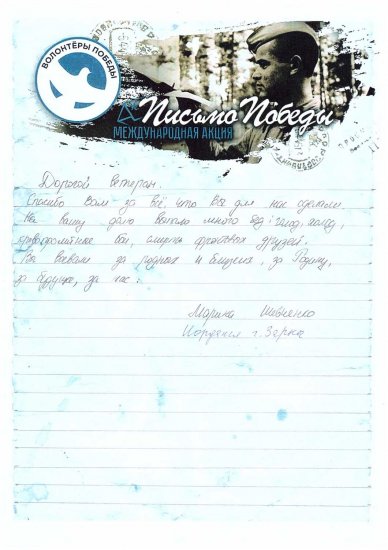 ВОЛОНТЁРЫ ПОБЕДЫ
Письмо Победы
МЕЖДУНАРОДНАЯ АКЦИЯ
Дорогой ветеран.
Спасибо Вам за всё, что Вы для нас сделали.
На вашу долю выпало много бед: голод, холод,
кровопролитные бои, смерть фронтовых друзей.
Вы воевали за родных и близких, за Родину,
за будущее, за нас.
Марина
Иордания г. Зарка